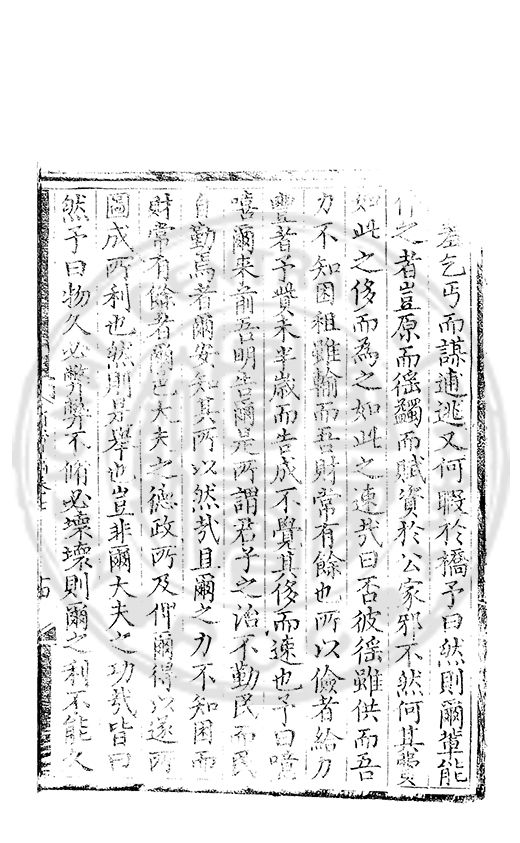 羞乞丐而謀逋逃又何暇於橋予曰然則爾輩能
作之者豈原而徭蠲而賦資於公家邪不然何其費
如此之侈而為之如此之速㢤曰否彼徭雖供而吾
力不知困租雖輸而吾財常有餘也所以儉者給力
豐者予貲未半歲而告成不覺其侈而速也予曰嘻
嘻爾来前吾明告爾是所謂君子之治不勤民而民
自勤焉者爾安知其所以然㢤且爾之力不知困而
財常有餘者爾邑大夫之德政所及俾爾得以遂所
圖成所利也然則是舉也豈非爾大夫之功㢤皆曰
然予曰物久必弊弊不脩必壞壞則爾之利不能久